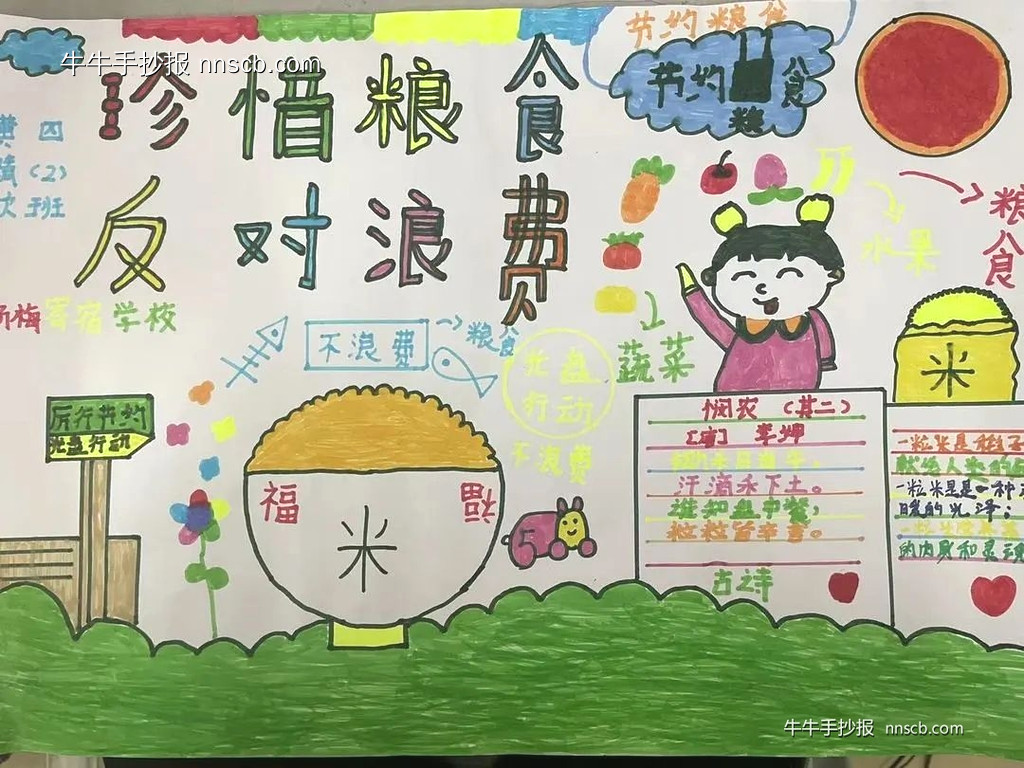 牛牛手抄报 nnscb.com
节约粮食
珍惜粮食
节约粮食
黄四
(2)
班
反对浪费
水果
粮食
寄宿学校
不浪费
粮食
光盘行动
蔬菜
不浪费
厉行节约
光盘行动
福
福
米
米
悯农(其二)
[唐] 李绅
汗滴禾下土。
谁知盘中餐,
粒粒皆辛苦。
古诗
一粒米是
一粒米是是一种
的光泽;
的内财和灵魂
牛牛手抄报 nnscb.com